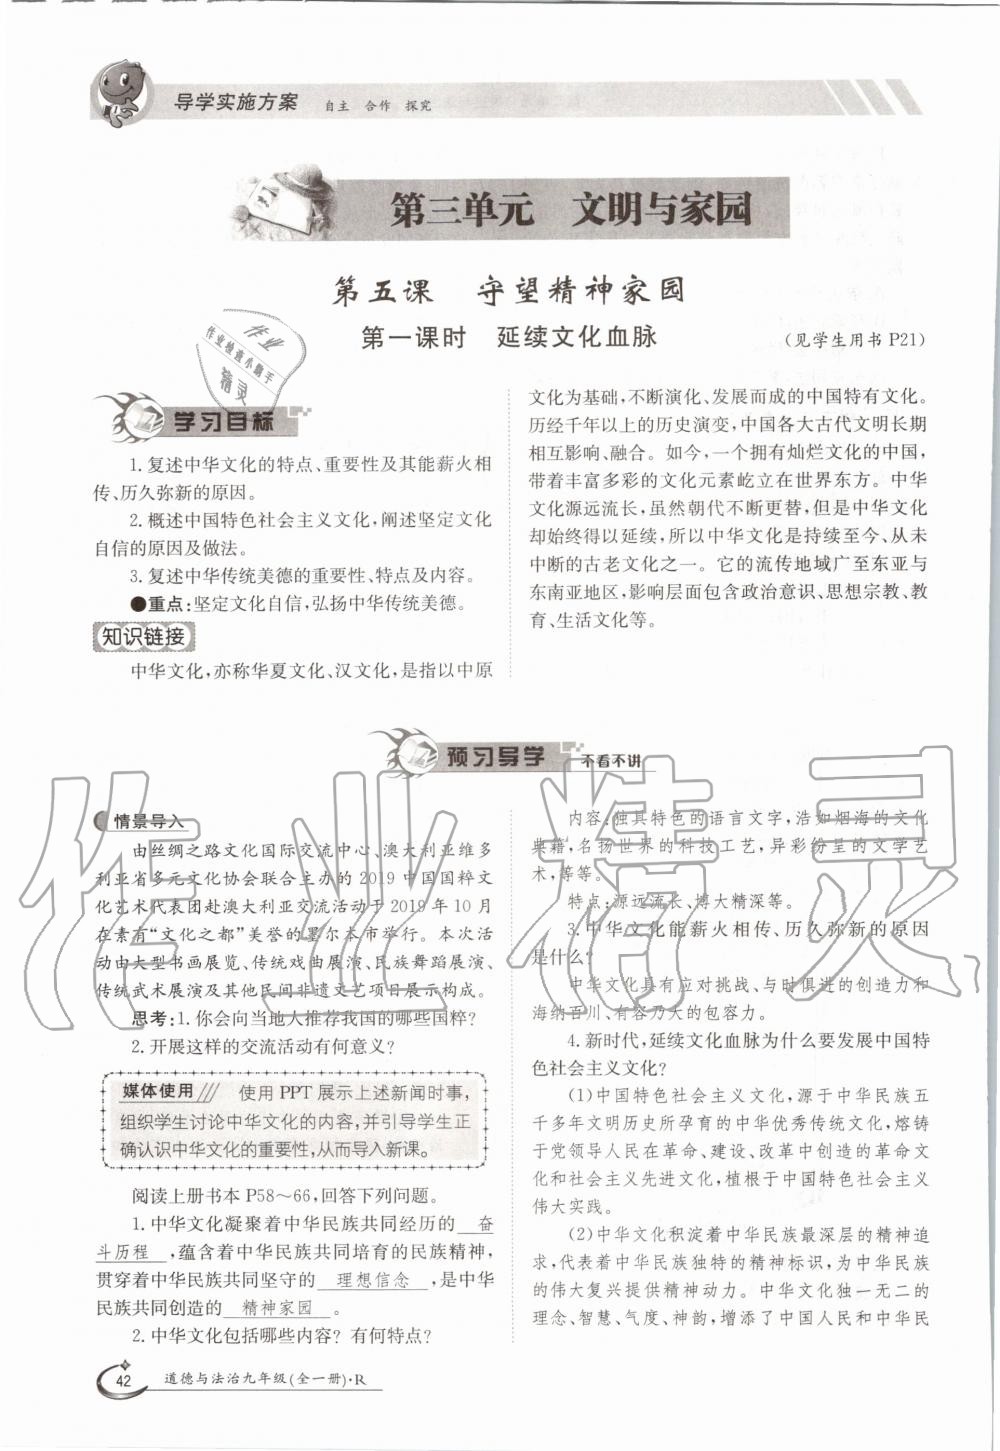 导学实施方案 自主 合作 探究
第三单元 文明与家园
第五课 守望精神家园
第一课时 延续文化血脉
(见学生用书 P21)
作业
作业检查小助手
精灵
学习目标
1. 复述中华文化的特点、重要性及其能薪火相
传、历久弥新的原因。
2. 概述中国特色社会主义文化,阐述坚定文化
自信的原因及做法。
3. 复述中华传统美德的重要性、特点及内容。
●重点:坚定文化自信,弘扬中华传统美德。
知识链接
中华文化,亦称华夏文化、汉文化,是指以中原
文化为基础,不断演化、发展而成的中国特有文化。
历经千年以上的历史演变,中国各大古代文明长期
相互影响、融合。如今,一个拥有灿烂文化的中国,
带着丰富多彩的文化元素屹立在世界东方。中华
文化源远流长,虽然朝代不断更替,但是中华文化
却始终得以延续,所以中华文化是持续至今、从未
中断的古老文化之一。它的流传地域广至东亚与
东南亚地区,影响层面包含政治意识、思想宗教、教
育、生活文化等。
预习导学 不看不讲
情景导入
由丝绸之路文化国际交流中心、澳大利亚维多
利亚省多元文化协会联合主办的 2019 中国国粹文
化艺术代表团赴澳大利亚交流活动于 2019 年 10 月
在素有“文化之都”美誉的墨尔本市举行。本次活
动由大型书画展览、传统戏曲展演、民族舞蹈展演、
传统武术展演及其他民间非遗文艺项目展示构成。
思考:1. 你会向当地人推荐我国的哪些国粹?
2. 开展这样的交流活动有何意义?
媒体使用 使用 PPT 展示上述新闻时事,
组织学生讨论中华文化的内容,并引导学生正
确认识中华文化的重要性,从而导入新课。
阅读上册书本 P58～66,回答下列问题。
1. 中华文化凝聚着中华民族共同经历的 奋
斗历程 ,蕴含着中华民族共同培育的民族精神,
贯穿着中华民族共同坚守的 理想信念 ,是中华
民族共同创造的 精神家园 。
2. 中华文化包括哪些内容? 有何特点?
内容:独具特色的语言文字,浩如烟海的文化
典籍,名扬世界的科技工艺,异彩纷呈的文学艺
术,等等。
特点:源远流长、博大精深等。
3. 中华文化能薪火相传、历久弥新的原因
是什么?
中华文化具有应对挑战、与时俱进的创造力和
海纳百川、有容乃大的包容力。
4. 新时代,延续文化血脉为什么要发展中国特
色社会主义文化?
(1)中国特色社会主义文化,源于中华民族五
千多年文明历史所孕育的中华优秀传统文化,熔铸
于党领导人民在革命、建设、改革中创造的革命文
化和社会主义先进文化,植根于中国特色社会主义
伟大实践。
(2)中华文化积淀着中华民族最深层的精神追
求,代表着中华民族独特的精神标识,为中华民族
的伟大复兴提供精神动力。中华文化独一无二的
理念、智慧、气度、神韵,增添了中国人民和中华民
作业精灵
42 道德与法治九年级(全一册)·R